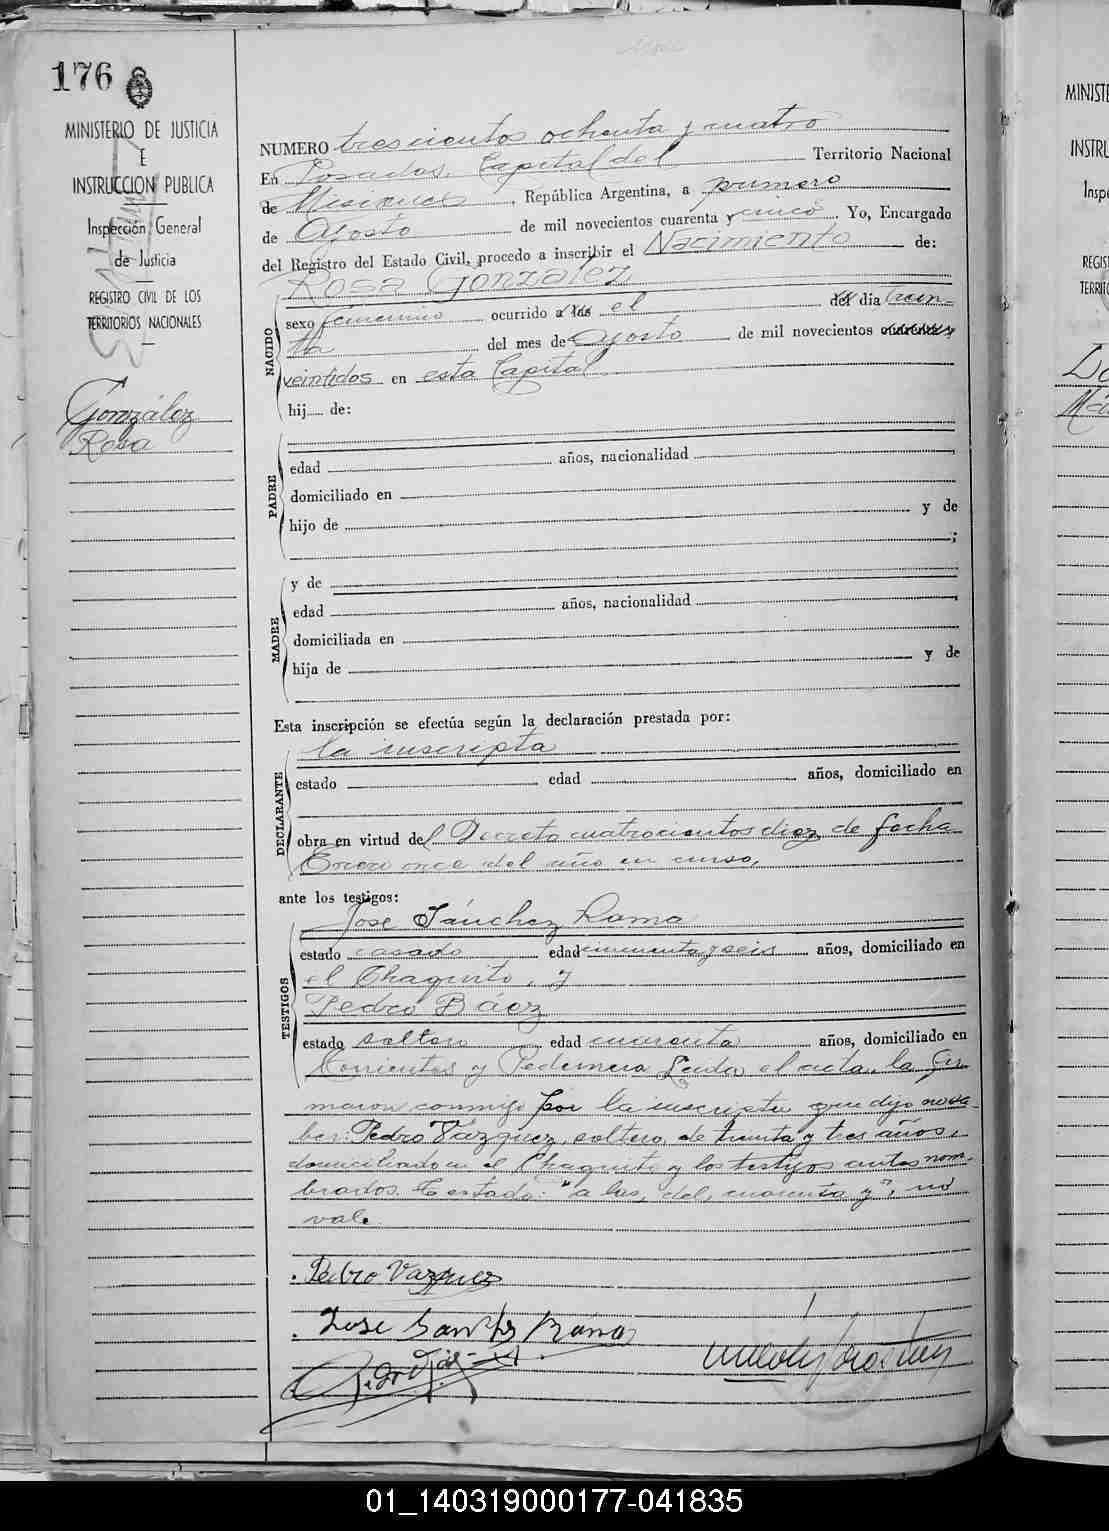 176
MINISTERIO DE JUSTICIA
E
INSTRUCCION PUBLICA
Inspección General
de Justicia
REGISTRO CIVIL DE LOS
TERRITORIOS NACIONALES
González
Rosa
NUMERO trescientos ochenta y cuatro
En Posadas, Capital del Territorio Nacional
de Misiones, República Argentina, a primero
de Agosto de mil novecientos cuarenta y cinco Yo, Encargado
del Registro del Estado Civil, procedo a inscribir el Nacimiento de:
Rosa Gonzalez
NACIDO
sexo femenino ocurrido a las el del dia trein-
ta del mes de Agosto de mil novecientos cuarenta y
veintidos en esta Capital
hij de:
PADRE
edad años, nacionalidad
domiciliado en
hijo de y de
;
MADRE
y de
edad años, nacionalidad
domiciliada en
hija de y de
Esta inscripción se efectúa según la declaración prestada por:
DECLARANTE
la inscripta
estado edad años, domiciliado en
obra en virtud del Decreto cuatrocientos diez de fecha
Enero once del año en curso,
ante los testigos:
TESTIGOS
José Sánchez Rama
estado casado edad cincuenta y seis años, domiciliado en
el Chaquito, y
Pedro Báez
estado soltero edad cuarenta años, domiciliado en
Corrientes y Pedernera Leida el acta, la fir
maron conmigo por la inscripta que dijo no sa-
ber: Pedro Vázquez, soltero, de treinta y tres años,
domiciliado en el Chaquito y los testigos antes nom-
brados. Testado: "a las, del, cuarenta y", no
vale.
Pedro Vazquez
Jose Sanchez Rama
MINISTE
INSTRU
Inspe
REGIS
TERRITO